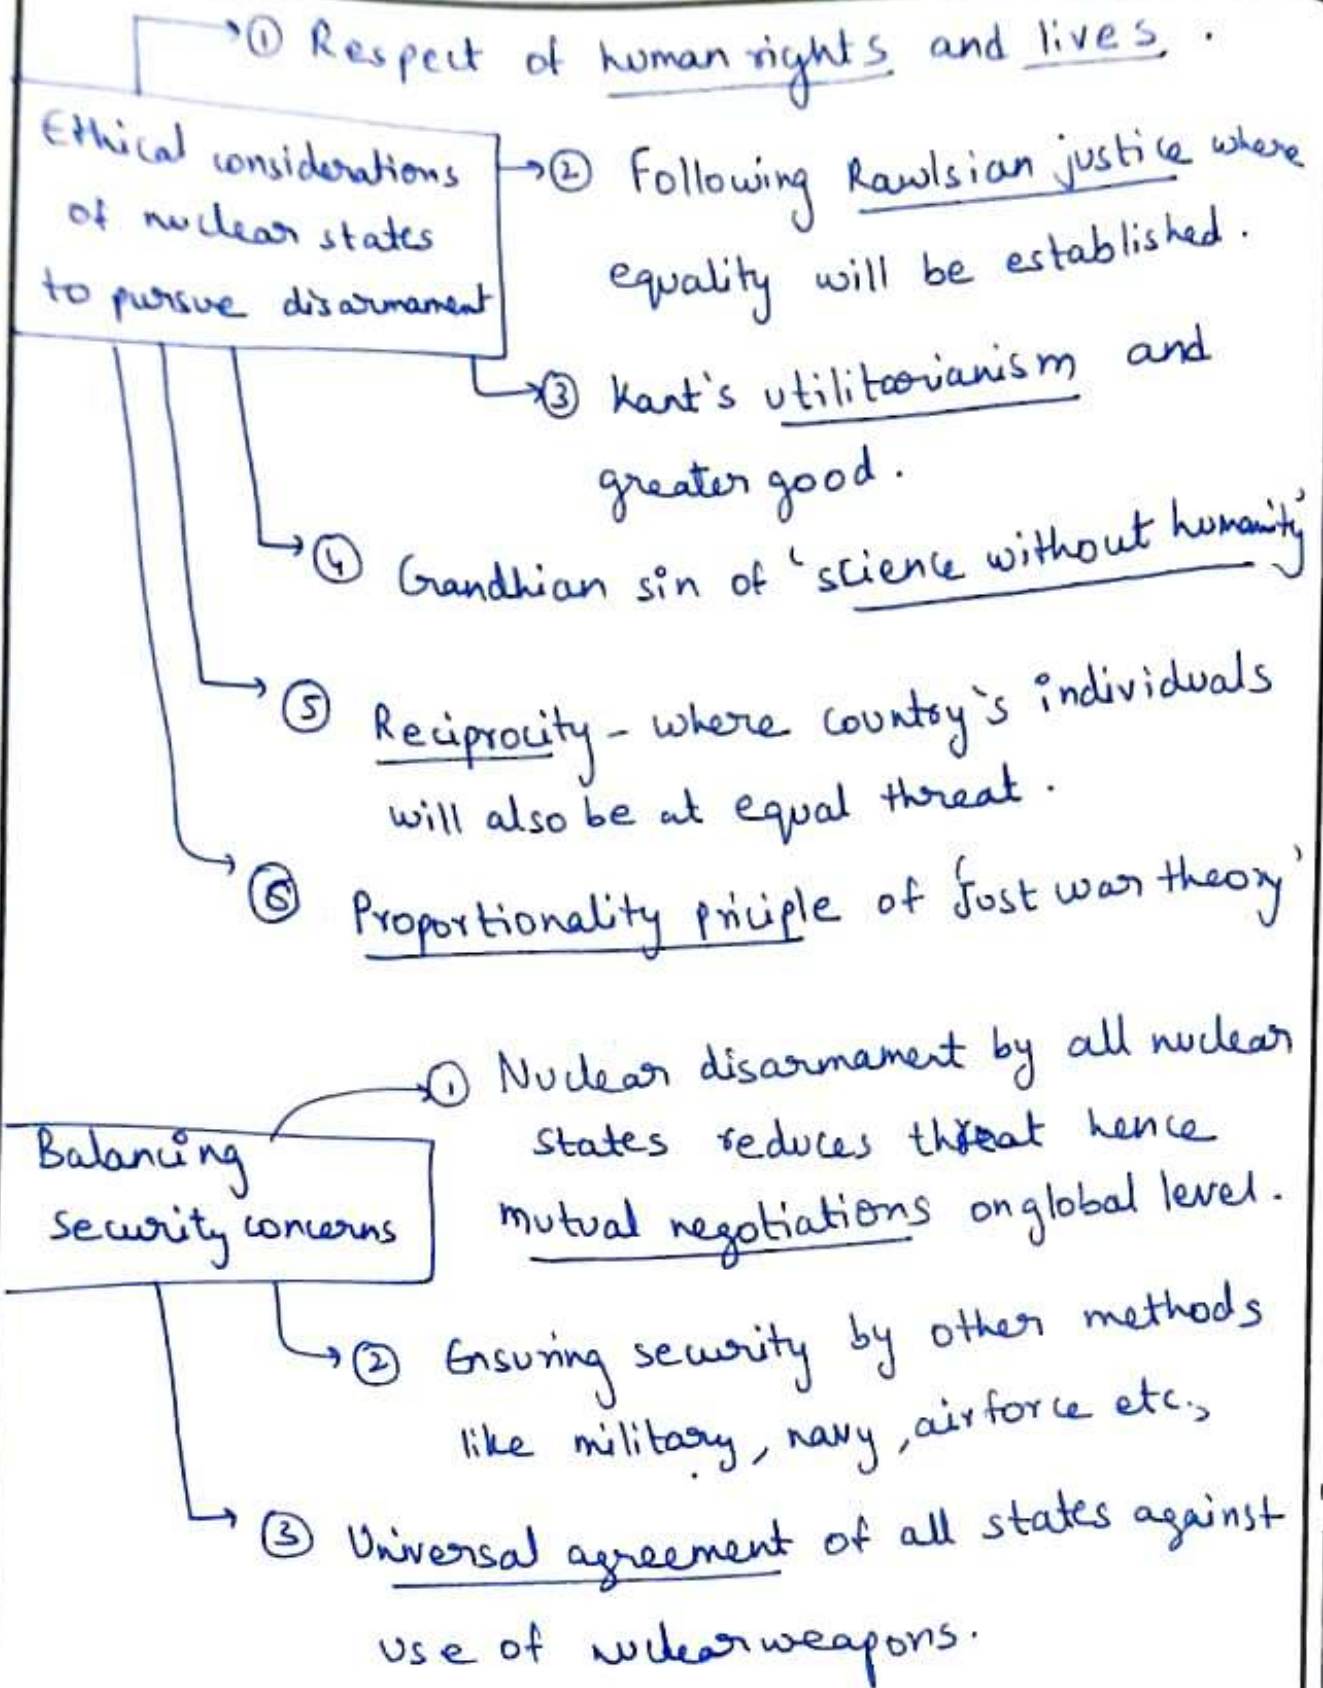 ① Respect of human rights and lives.
Ethical considerations
of nuclear states
to pursue disarmament
② Following Rawlsian justice where
equality will be established.
③ Kant's utilitarianism and
greater good.
④ Gandhian sin of 'science without humanity'
⑤ Reciprocity - where country's individuals
will also be at equal threat.
⑥ Proportionality priciple of 'Just war theory'
Balancing
security concerns
① Nuclear disarmament by all nuclear
states reduces threat hence
mutual negotiations on global level.
② Ensuring security by other methods
like military, navy, airforce etc.,
③ Universal agreement of all states against
use of nuclear weapons.